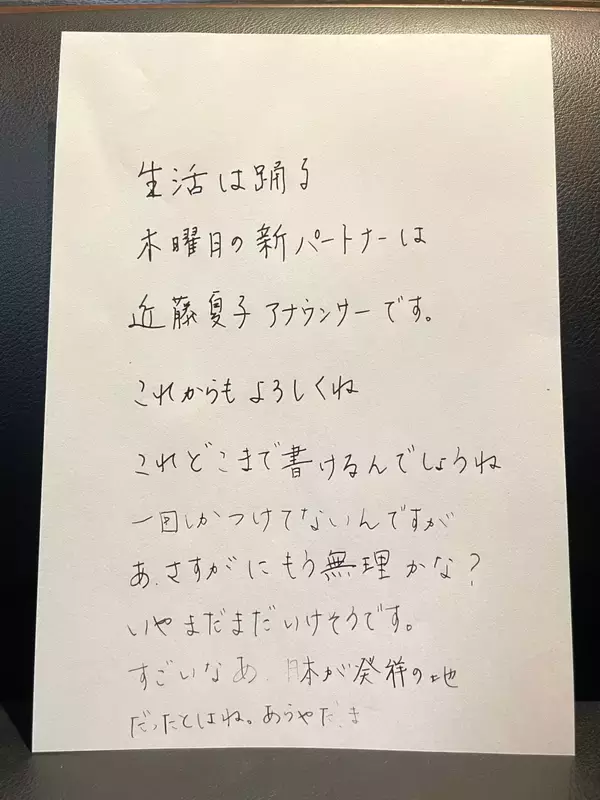 生活は踊る
木曜日の新パートナーは
近藤夏子アナウンサーです。
これからもよろしくね
これどこまで書けるんでしょうね
一回しかつけてないんですが
あ、さすがにもう無理かな？
いやまだまだいけそうです。
すごいなあ、日本が発祥の地
だったとはね。あらやだ、ま